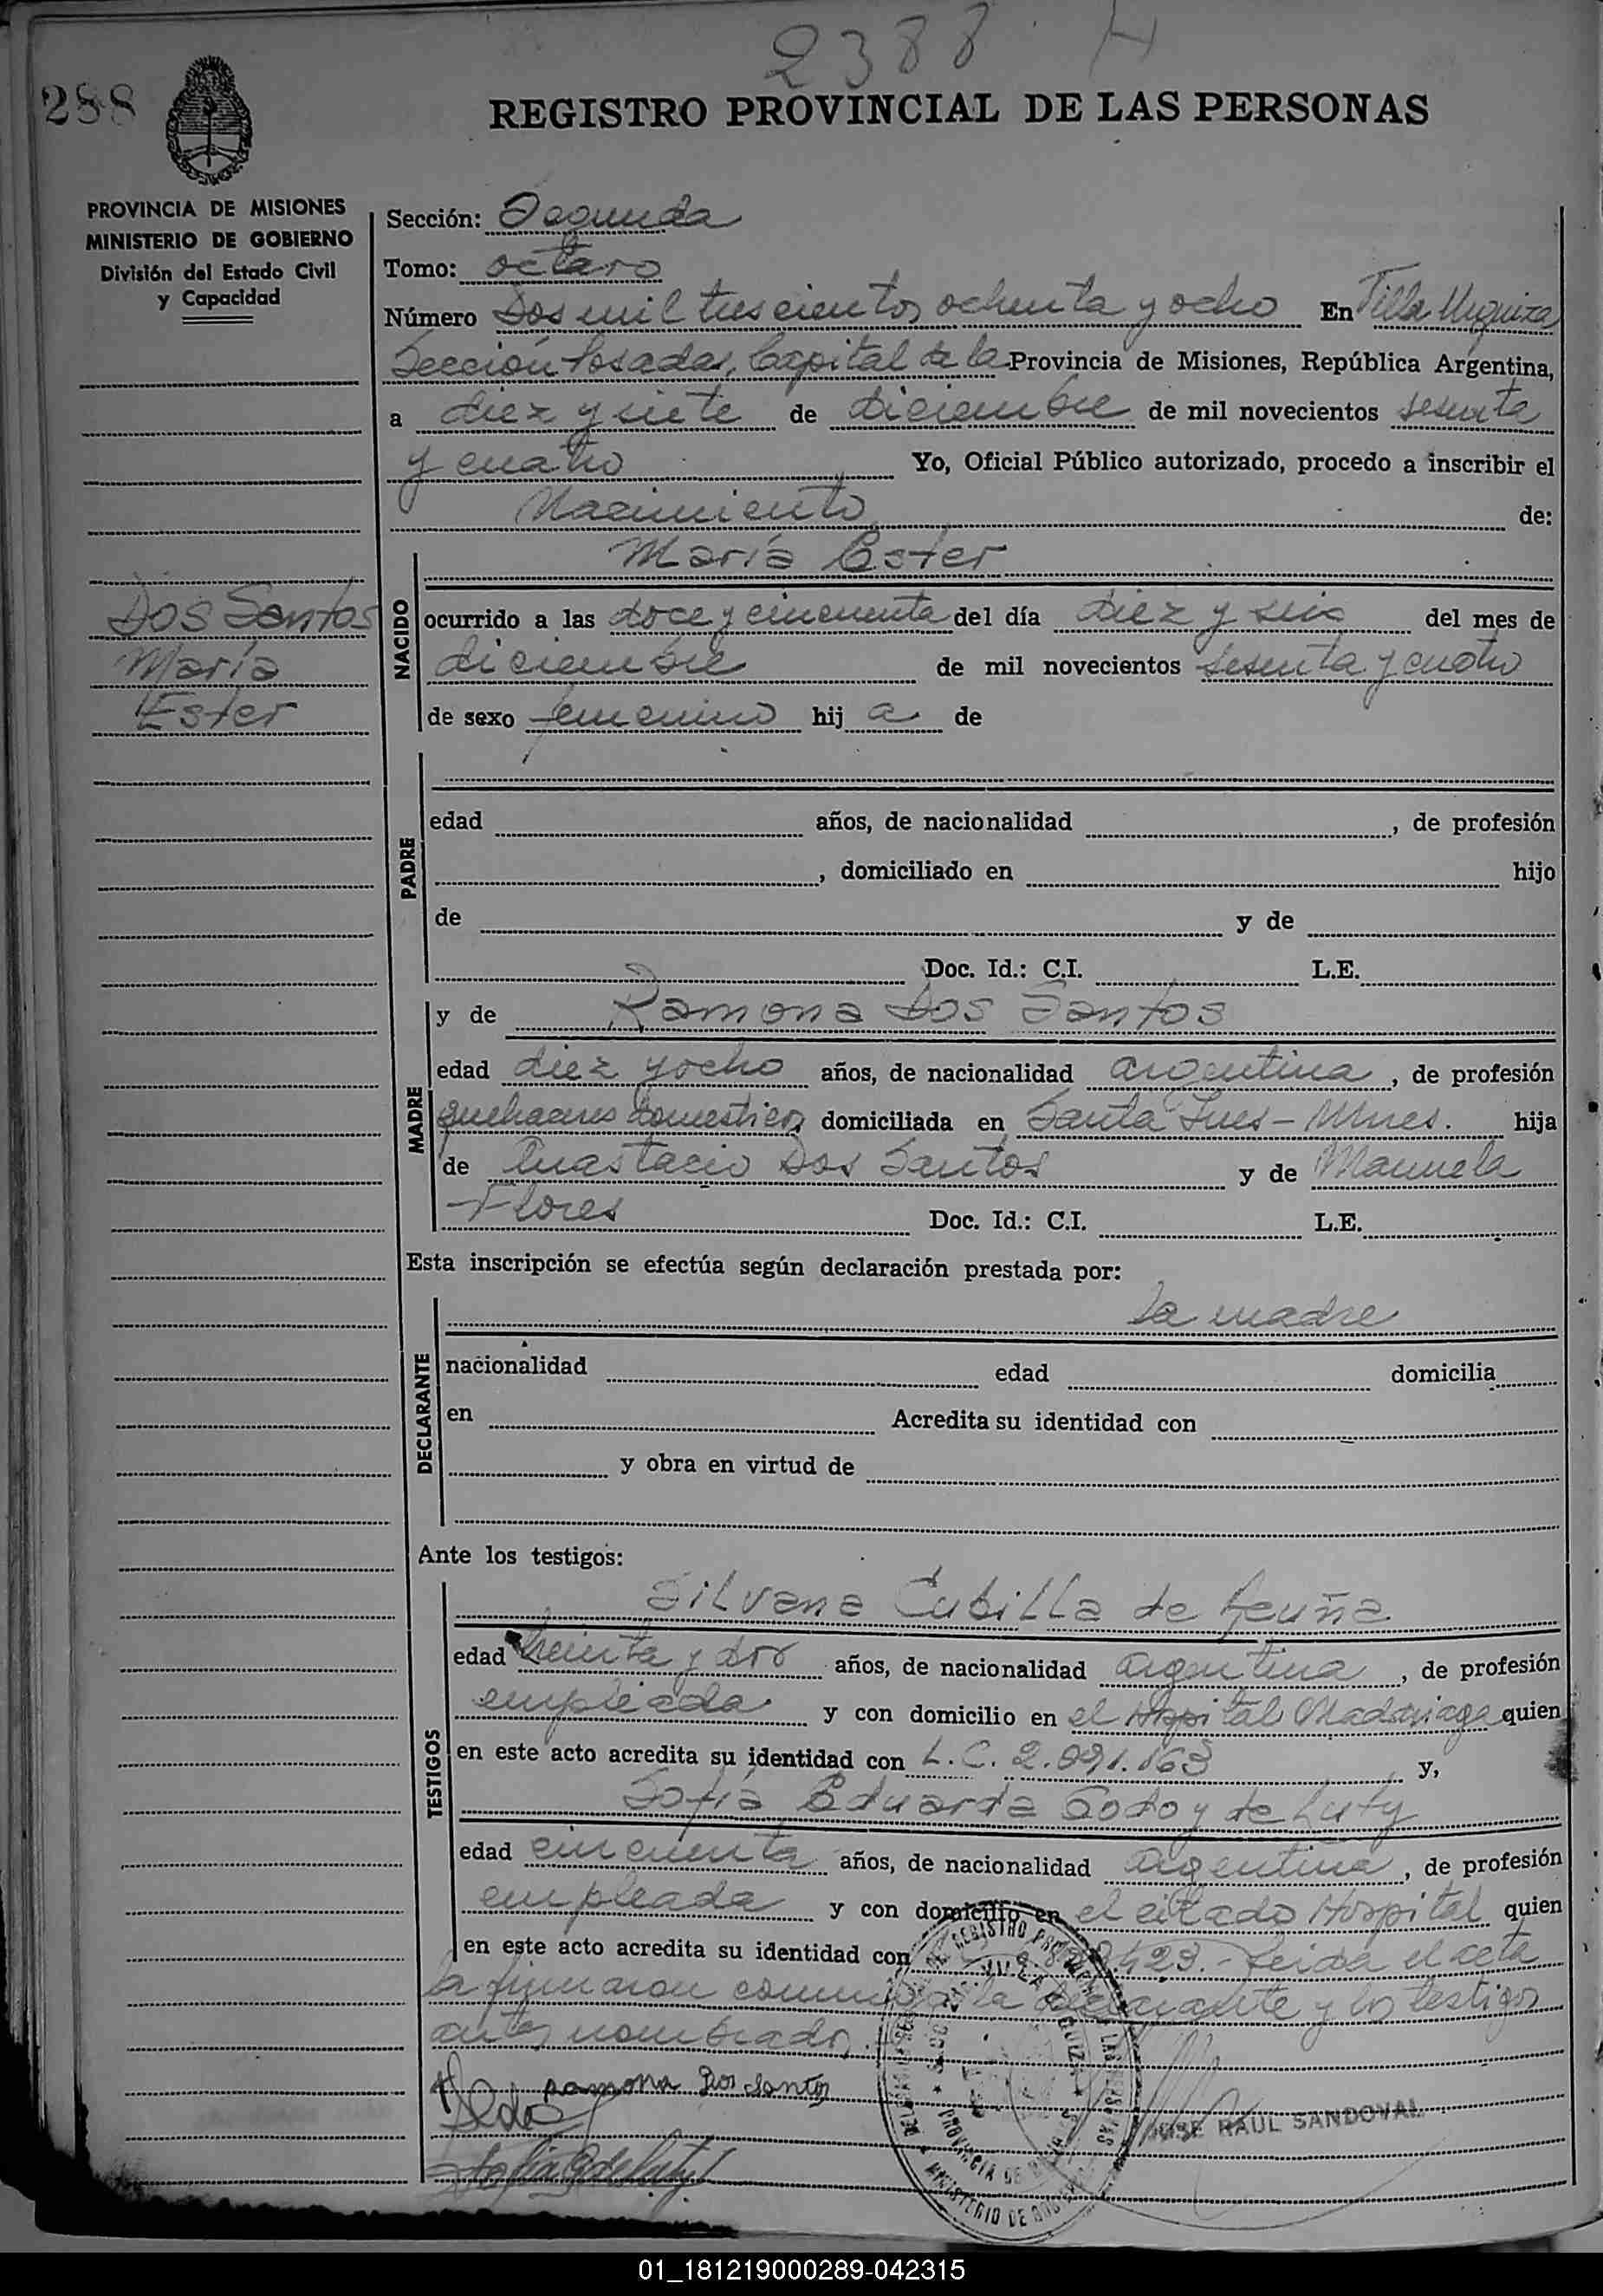 2388 H
288
REGISTRO PROVINCIAL DE LAS PERSONAS
PROVINCIA DE MISIONES
MINISTERIO DE GOBIERNO
División del Estado Civil
y Capacidad
Sección: Segunda
Tomo: octavo
Número Dos mil trescientos ochenta y ocho En Villa Urquiza
Sección Posadas, Capital de la Provincia de Misiones, República Argentina,
a diez y siete de diciembre de mil novecientos sesenta
y cuatro Yo, Oficial Público autorizado, procedo a inscribir el
Nacimiento de:
María Ester
Dos Santos
María
Ester
NACIDO
ocurrido a las doce y cincuenta del día diez y seis del mes de
diciembre de mil novecientos sesenta y cuatro
de sexo femenino hij a de
PADRE
edad años, de nacionalidad , de profesión
, domiciliado en hijo
de y de
Doc. Id.: C.I. L.E.
MADRE
y de Ramona Dos Santos
edad diez y ocho años, de nacionalidad argentina, de profesión
quehaceres domesticos domiciliada en Santa Ines - Mnes. hija
de Anastacio Dos Santos y de Manuela
Flores Doc. Id.: C.I. L.E.
Esta inscripción se efectúa según declaración prestada por:
la madre
DECLARANTE
nacionalidad edad domicilia
en Acredita su identidad con
y obra en virtud de
Ante los testigos:
TESTIGOS
Silvana Cubilla de
edad treinta y dos años, de nacionalidad argentina, de profesión
empleada y con domicilio en el Hospital Madariaga quien
en este acto acredita su identidad con L.C. 2.091.163 y,
Sofía Eduarda Godoy de Luty
edad cincuenta años, de nacionalidad argentina, de profesión
empleada y con domicilio en el citado Hospital quien
en este acto acredita su identidad con 423.- Leida el acta
la firmaron conmigo la declarante y los testigos
antes nombrados.
Ramona Dos Santos
JOSE RAUL SANDOVAL
01_181219000289-042315